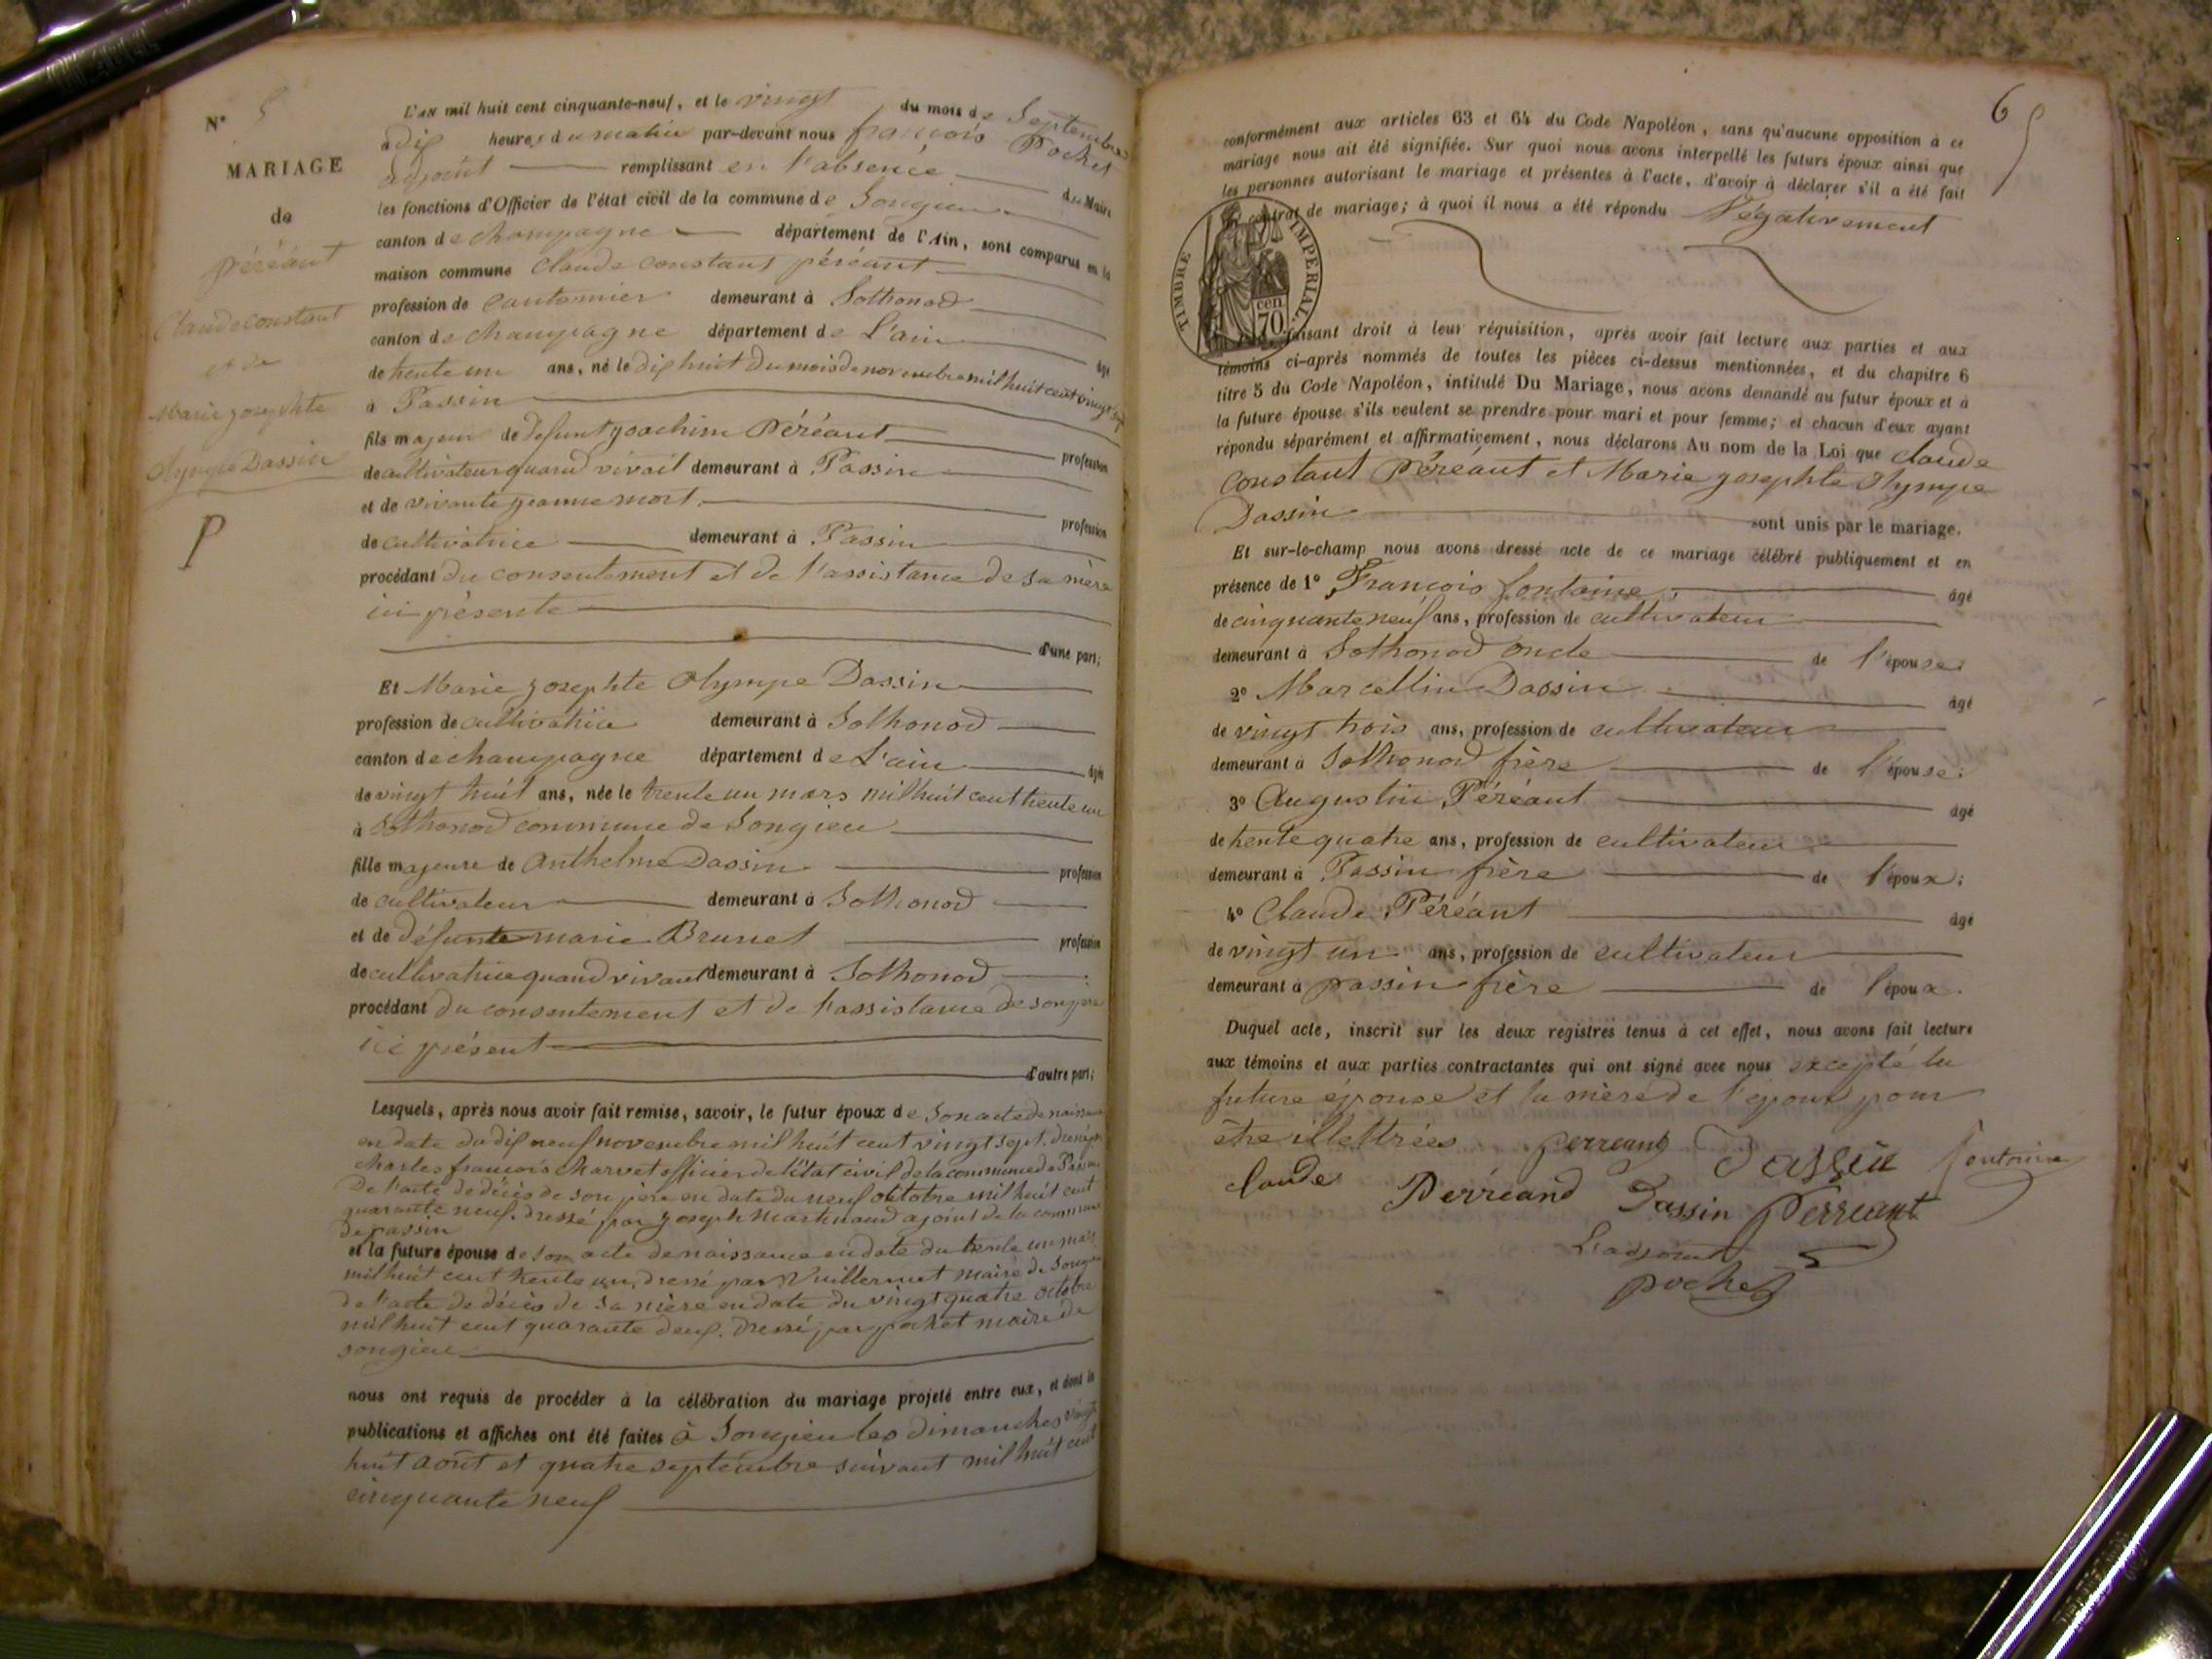 N° 5
MARIAGE
de
péréant
Claude constant
et de
Marie josephte
Olympe Dassin
P
L'an mil huit cent cinquante-neuf, et le vingt du mois de Septembre
à dix heures du matin par-devant nous françois Pochet
adjoint remplissant en l'absence du Maire
les fonctions d'Officier de l'état civil de la commune de Songieu
canton de champagne département de l'Ain, sont comparus en la
maison commune Claude constant péréant
profession de cantonnier demeurant à Sothonod
canton de champagne département de L'ain âgé
de trente un ans, né le dix huit du mois de novembre mil huit cent vingt sept
à Passin
fils majeur de defunt joachim Péréant profession
de cultivateur quand vivait demeurant à Passin
et de vivante jeanne mort. profession
de cultivatrice demeurant à Passin
procédant du consentement et de l'assistance de sa mère
ici présente
d'une part;
Et Marie josephte Olympe Dassin
profession de cultivatrice demeurant à Sothonod
canton de champagne département de L'ain âgée
de vingt huit ans, née le trente un mars mil huit cent trente un
à Sothonod commune de Songieu
fille majeure de Anthelme Dassin profession
de cultivateur demeurant à Sothonod
et de défunte marie Brunet profession
de cultivatrice quand vivant demeurant à Sothonod
procédant du consentement et de l'assistance de son père
ici présent
d'autre part;
Lesquels, après nous avoir fait remise, savoir, le futur époux de son acte de naissance
en date du dix neuf novembre mil huit cent vingt sept. dressé par
Charles françois Charvet officier de l'état civil de la commune de Passin
De l'acte de décès de son père en date du neuf octobre mil huit cent
quarante neuf. dressé par joseph Martinand ajoint de la commune
de passin
et la future épouse de son acte de naissance en date du trente un mars
mil huit cent trente un, dressé par Vuillermet maire de Songieu
de l'acte de décès de sa mère en date du vingt quatre octobre
mil huit cent quarante deux. dressé par pochet maire de
songieu
nous ont requis de procéder à la célébration du mariage projeté entre eux, et dont les
publications et affiches ont été faites à Songieu les dimanches vingt
huit août et quatre septembre suivant mil huit cent
cinquante neuf
6
conformément aux articles 63 et 64 du Code Napoléon, sans qu'aucune opposition à ce
mariage nous ait été signifiée. Sur quoi nous avons interpellé les futurs époux ainsi que
les personnes autorisant le mariage et présentes à l'acte, d'avoir à déclarer s'il a été fait
contrat de mariage; à quoi il nous a été répondu Négativement
TIMBRE IMPERIAL
70 cen.
faisant droit à leur réquisition, après avoir fait lecture aux parties et aux
témoins ci-après nommés de toutes les pièces ci-dessus mentionnées, et du chapitre 6
titre 5 du Code Napoléon, intitulé Du Mariage, nous avons demandé au futur époux et à
la future épouse s'ils veulent se prendre pour mari et pour femme; et chacun d'eux ayant
répondu séparément et affirmativement, nous déclarons Au nom de la Loi que claude
Constant Péréant et Marie josephte Olympe
Dassin sont unis par le mariage.
Et sur-le-champ nous avons dressé acte de ce mariage célébré publiquement et en
présence de 1° François fontaine, âgé
de cinquante neuf ans, profession de cultivateur
demeurant à Sothonod oncle de l'épouse;
2° Marcellin Dassin âgé
de vingt trois ans, profession de cultivateur
demeurant à Sothonod frère de l'épouse;
3° Augustin Péréant âgé
de trente quatre ans, profession de cultivateur
demeurant à Passin frère de l'époux;
4° Claude Péréant âgé
de vingt un ans, profession de cultivateur
demeurant à passin frère de l'époux.
Duquel acte, inscrit sur les deux registres tenus à cet effet, nous avons fait lecture
aux témoins et aux parties contractantes qui ont signé avec nous excepté la
future épouse et la mère de l'époux pour
être illettrées perreant Dassin fontaine
Claude Perréand Dassin Perreant
L'adjoint
pochet